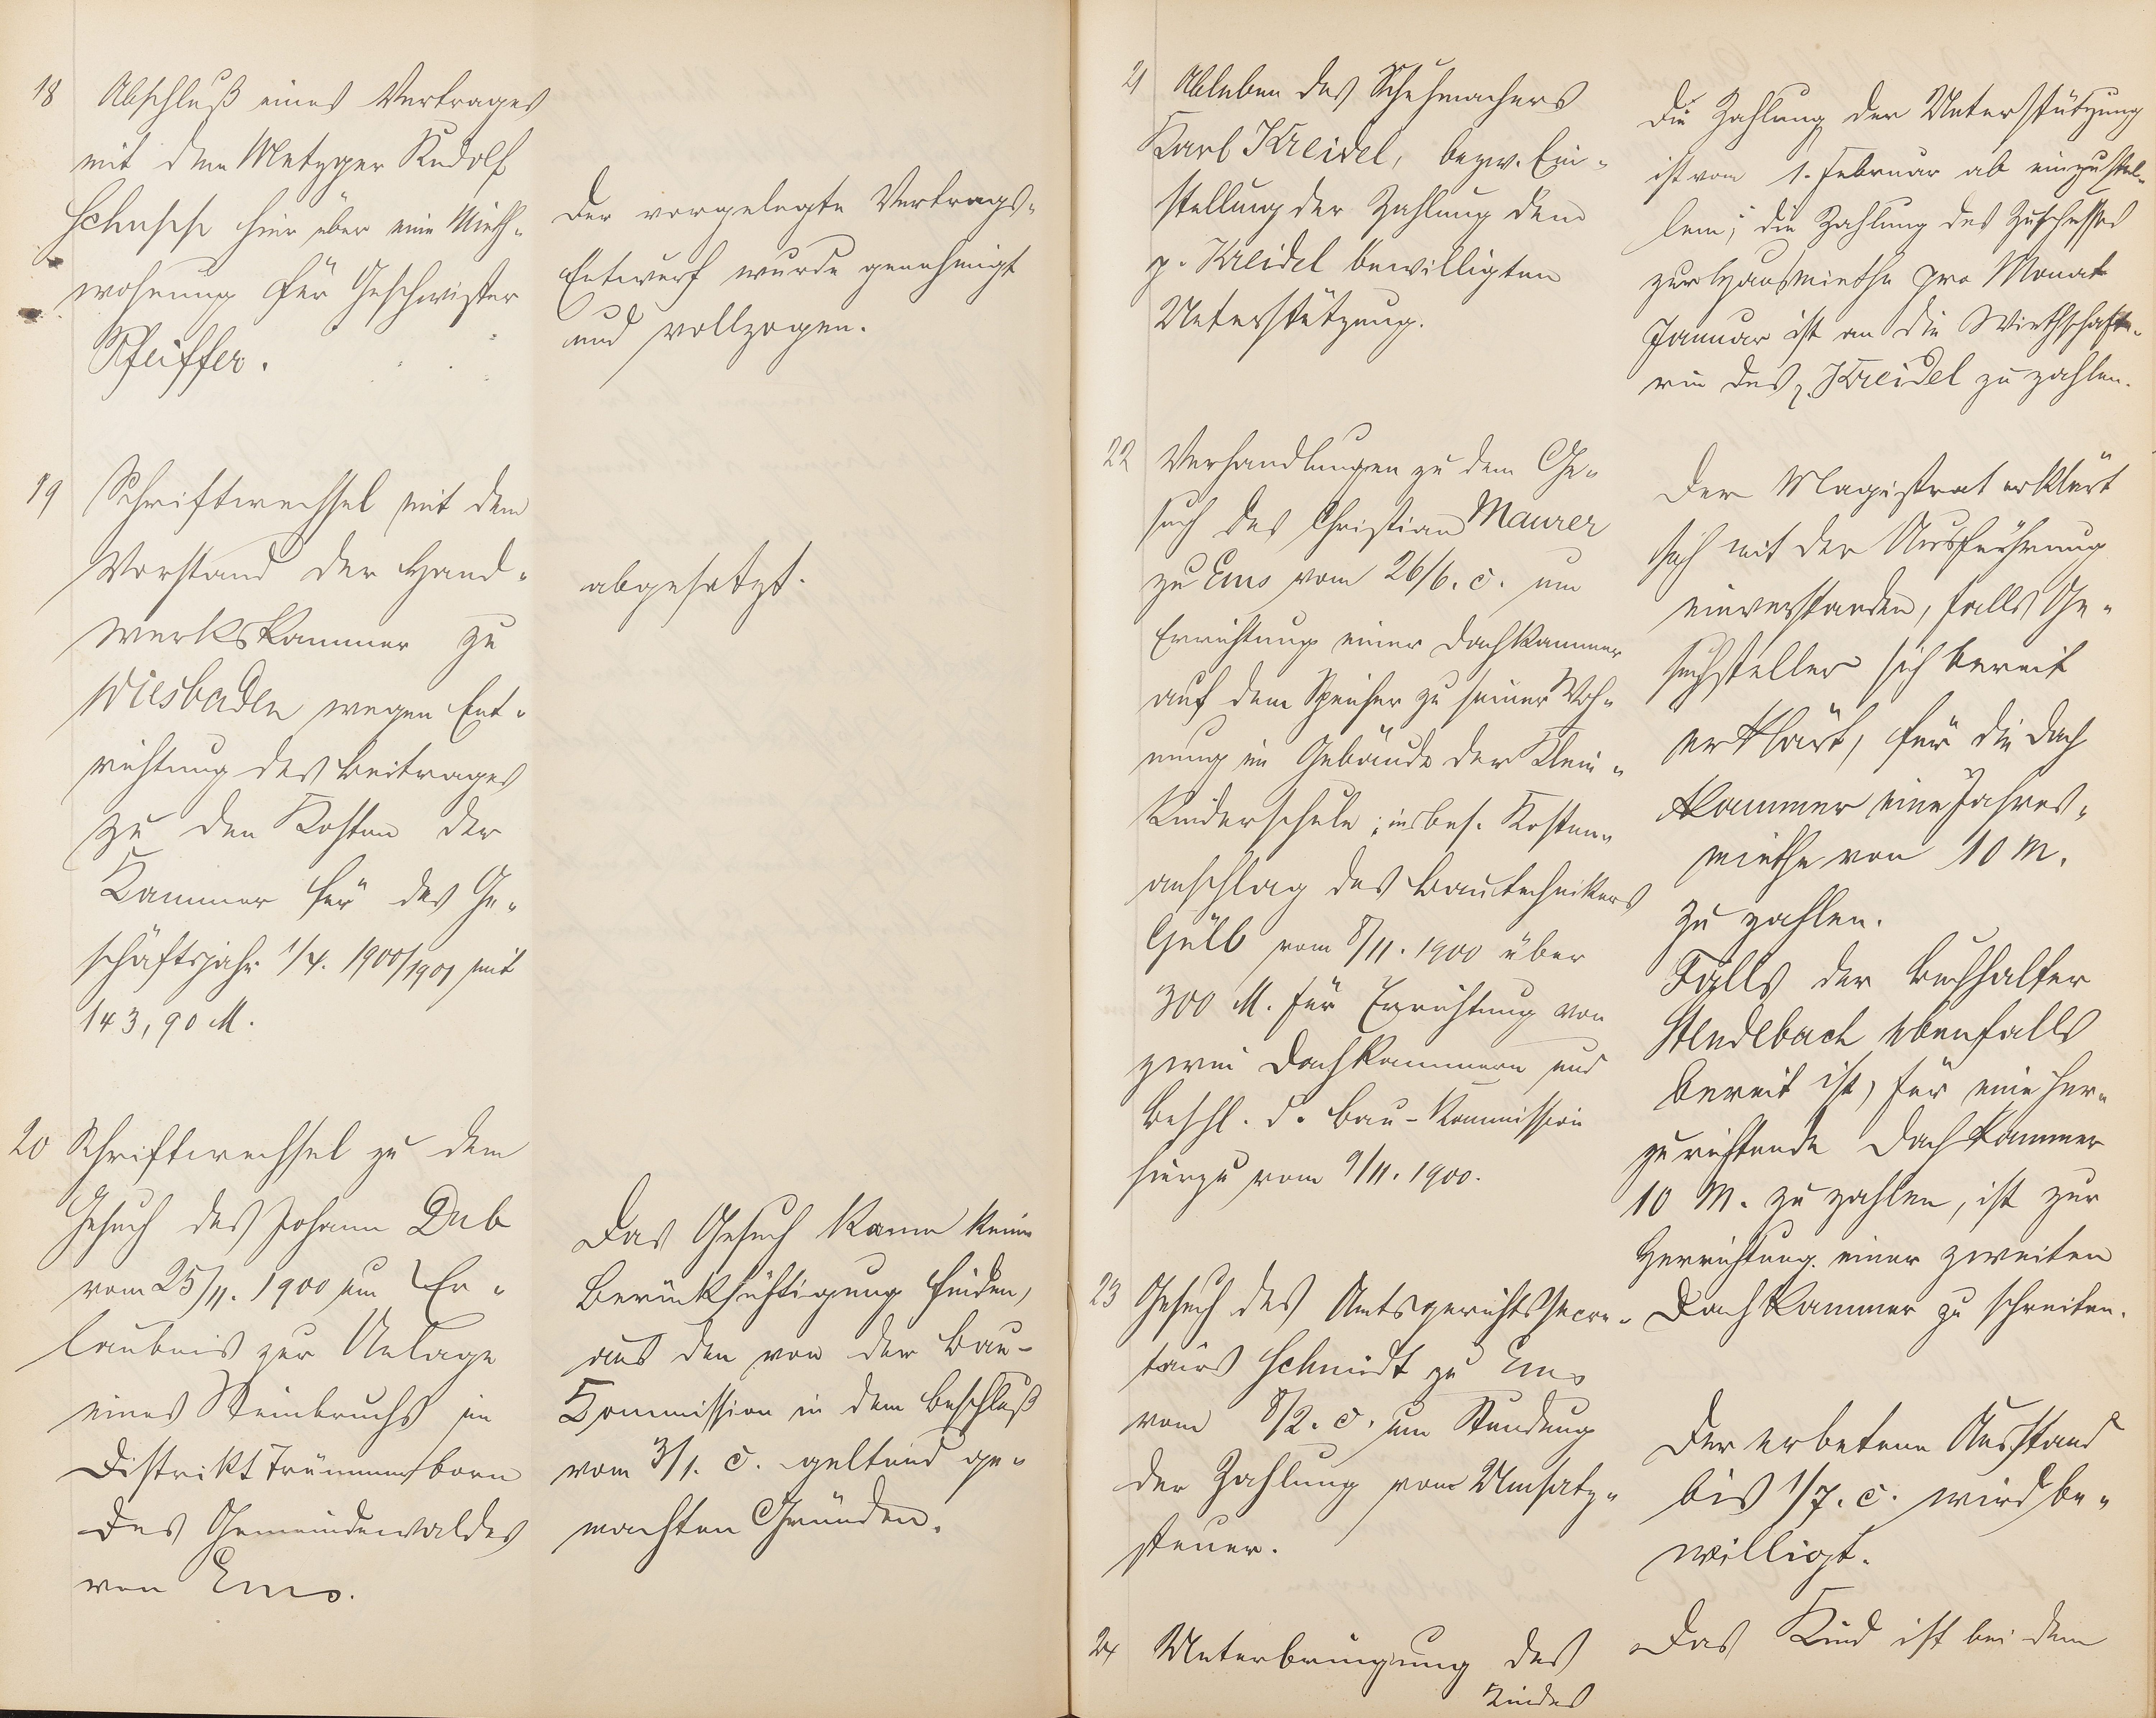 18 Abschluß eines Vertrages
mit dem Metzger Rudolf
hier über eine Mieth-
wohnung für Geschwister
Pfeiffer.
Der vorgelegte Vertrags-
Entwurf wurde genehmigt
und vollzogen.
19 Schriftwechsel mit dem
Vorstand der Hand-
werkskammer zu
Wiesbaden wegen Ent-
richtung des Beitrages
zu den Kosten der
Kammer für das Ge-
schäftsjahr 1/4. 1900/1901 mit
143,90 M.
abgesetzt.
20 Schriftwechsel zu dem
Gesuch des Johann Dub
vom 25/11. 1900 um Er-
laubnis zur Anlage
eines Steinbruchs im
Distrikt Trümmerborn
des Gemeindewaldes
von Ems.
Das Gesuch kann keine
Berücksichtigung finden,
aus den von der Bau-
Kommission in dem Beschluß
vom 3/1. c. geltend ge-
machten Gründen.
21 Ableben des Schuhmachers
Karl Kreidel, bezw. Ein-
stellung der Zahlung dem
p. Kreidel bewilligten
Unterstützung.
Die Zahlung der Unterstützung
ist vom 1. Februar ab einzustel-
len; die Zahlung des Zuschusses
zur Hausmiethe pro Monat
Januar ist an die Wirthschafte-
rin des p. Kreidel zu zahlen.
22 Verhandlungen zu dem Ge-
such des Christian Maurer
zu Ems vom 26/6. c. um
Errichtung einer Dachkammer
auf dem Speicher zu seiner Woh-
nung im Gebäude der Klein-
Kinderschule; insbes. Kosten-
anschlag des Bautechnikers
Gülb vom 8/11. 1900 über
300 M. für Errichtung von
zwei Dachkammern und
Beschl. d. Bau-Kommission
hierzu vom 9/11. 1900.
Der Magistrat erklärt
sich mit der Ausführung
einverstanden, falls Ge-
suchsteller sich bereit
erklärt, für die Dach
kammer eine Jahres-
miethe von 10 M.
zu zahlen.
Falls der Buchhalter
Stendebach ebenfalls
bereit ist, für eine her-
zurichtende Dachkammer
10 M. zu zahlen, ist zur
Herrichtung einer zweiten
Dachkammer zu schreiten.
23 Gesuch des Amtsgerichtssecre-
tairs Schmidt zu Ems
vom 8/2. c. um Stundung
der Zahlung von Umsatz-
steuer.
Der erbetene Ausstand
bis 1/7. c. wird be-
willigt.
24 Unterbringung des
Kindes
Das Kind ist bei dem